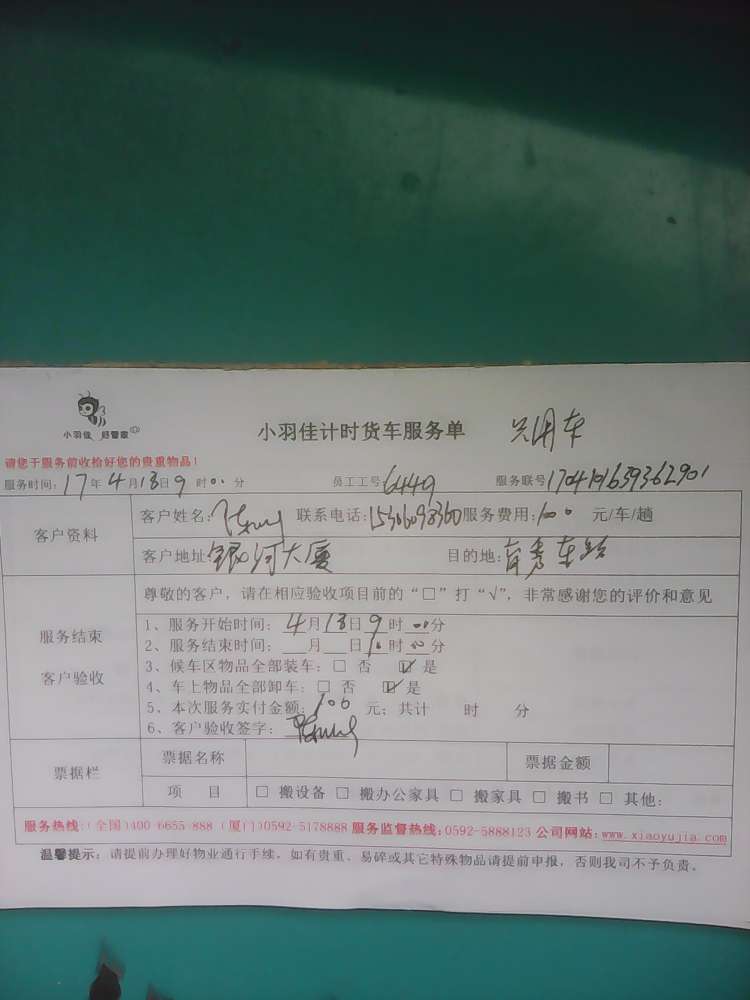 小羽佳 好管家
小羽佳计时货车服务单
请您于服务前收拾好您的贵重物品!
服务时间: 17年4月13日9时00分 员工工号6449 服务联号
客户资料
客户姓名: 联系电话: 服务费用:100 元/车/趟
客户地址:银河大厦 目的地:
服务结束
客户验收
尊敬的客户,请在相应验收项目前的“□”打“√”,非常感谢您的评价和意见
1、服务开始时间:4月13日9时00分
2、服务结束时间:__月__日10时00分
3、候车区物品全部装车:□ 否 ☑ 是
4、车上物品全部卸车:□ 否 ☑ 是
5、本次服务实付金额:100 元;共计 时 分
6、客户验收签字:
票据栏
票据名称 票据金额
项 目 □ 搬设备 □ 搬办公家具 □ 搬家具 □ 搬书 □ 其他:
服务热线:(全国)400-6655-888 (厦门)0592-5178888 服务监督热线:0592-5888123 公司网站:www.xiaoyujia.com
温馨提示:请提前办理好物业通行手续,如有贵重、易碎或其它特殊物品请提前申报,否则我司不予负责。